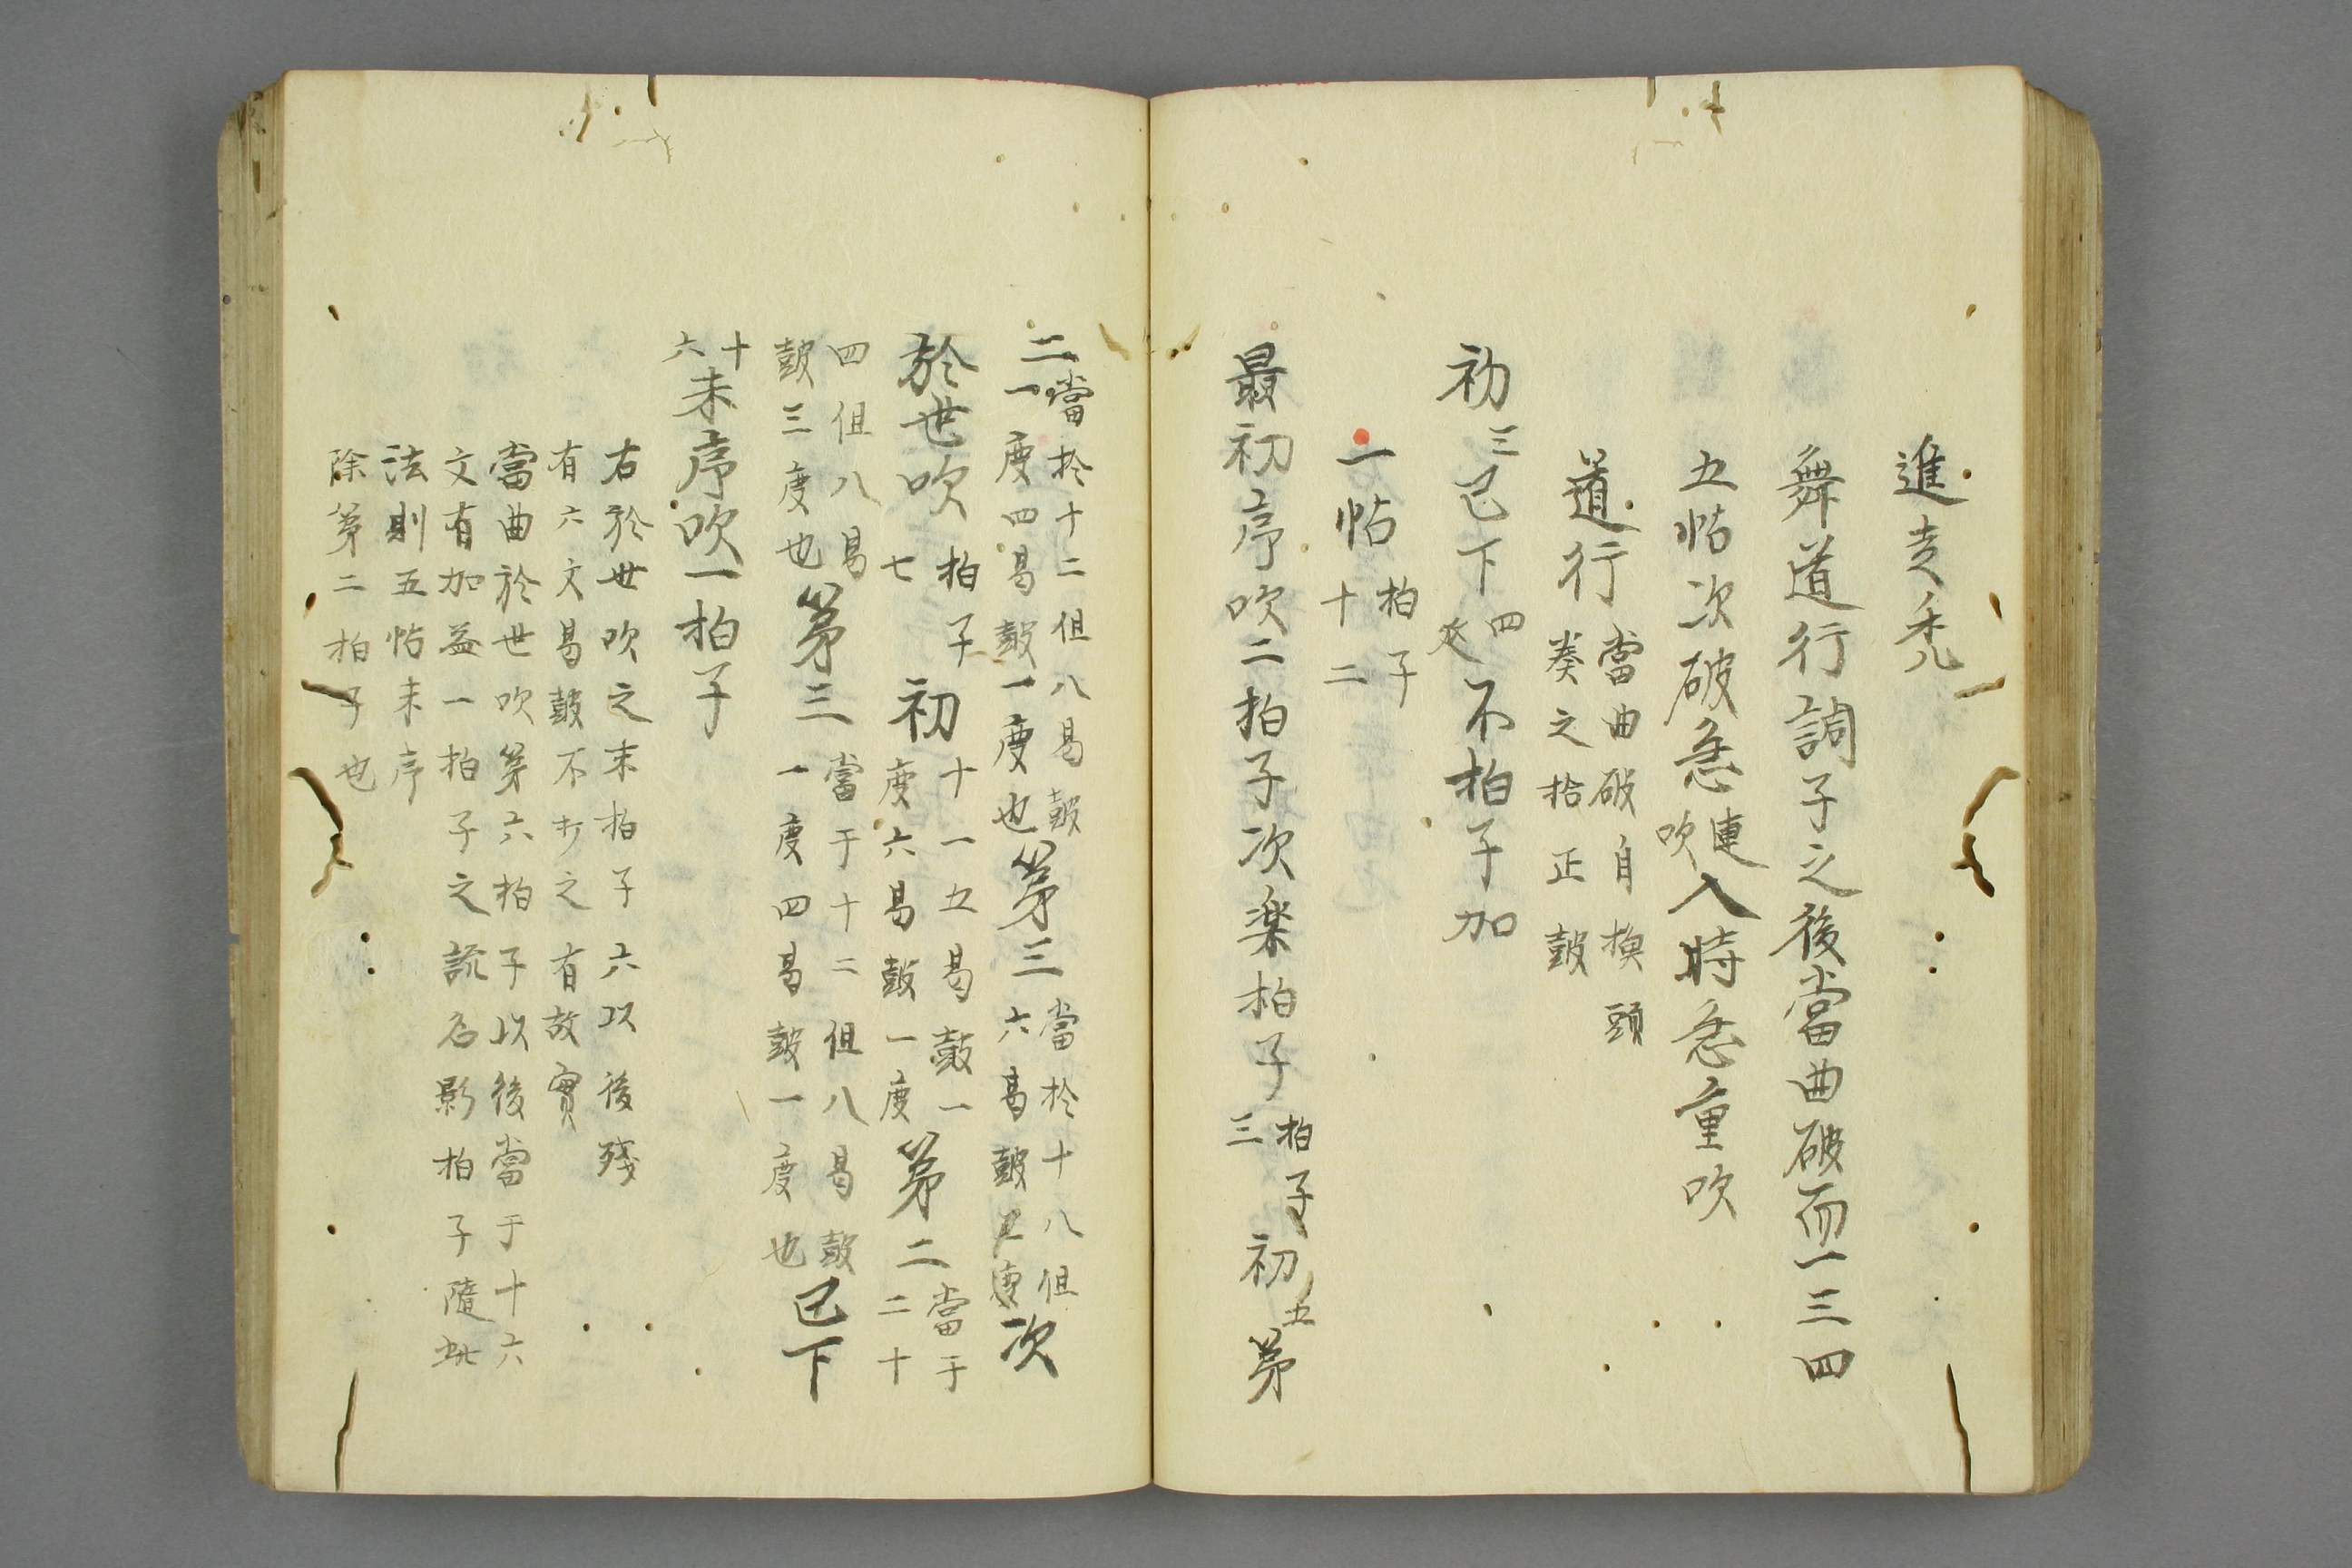 進走禿
舞道行調子之後當曲破而一三四
五帖次破急連吹入時急重吹
道行當曲破自換頭奏之拾正鼓
初三已下四不拍子加
一帖拍子十二
最初序吹二拍子次楽拍子拍子三初五第
二當於十二但八曷鼓一度四曷鼓一度也第三當於十八但六曷鼓二度次
於世吹拍子七初十一五曷鼓一度六曷鼓一度第二當于二十
四但八曷鼓三度也第三當于十二但八曷鼓一度四曷鼓一度也已下
十六末序吹一拍子
右於世吹之末拍子六以後殘
有六文曷鼓不打之有故實
當曲於世吹第六拍子以後當于十六
文有加益一拍子之説名影拍子隨此
法則五帖末序
除第二拍子也